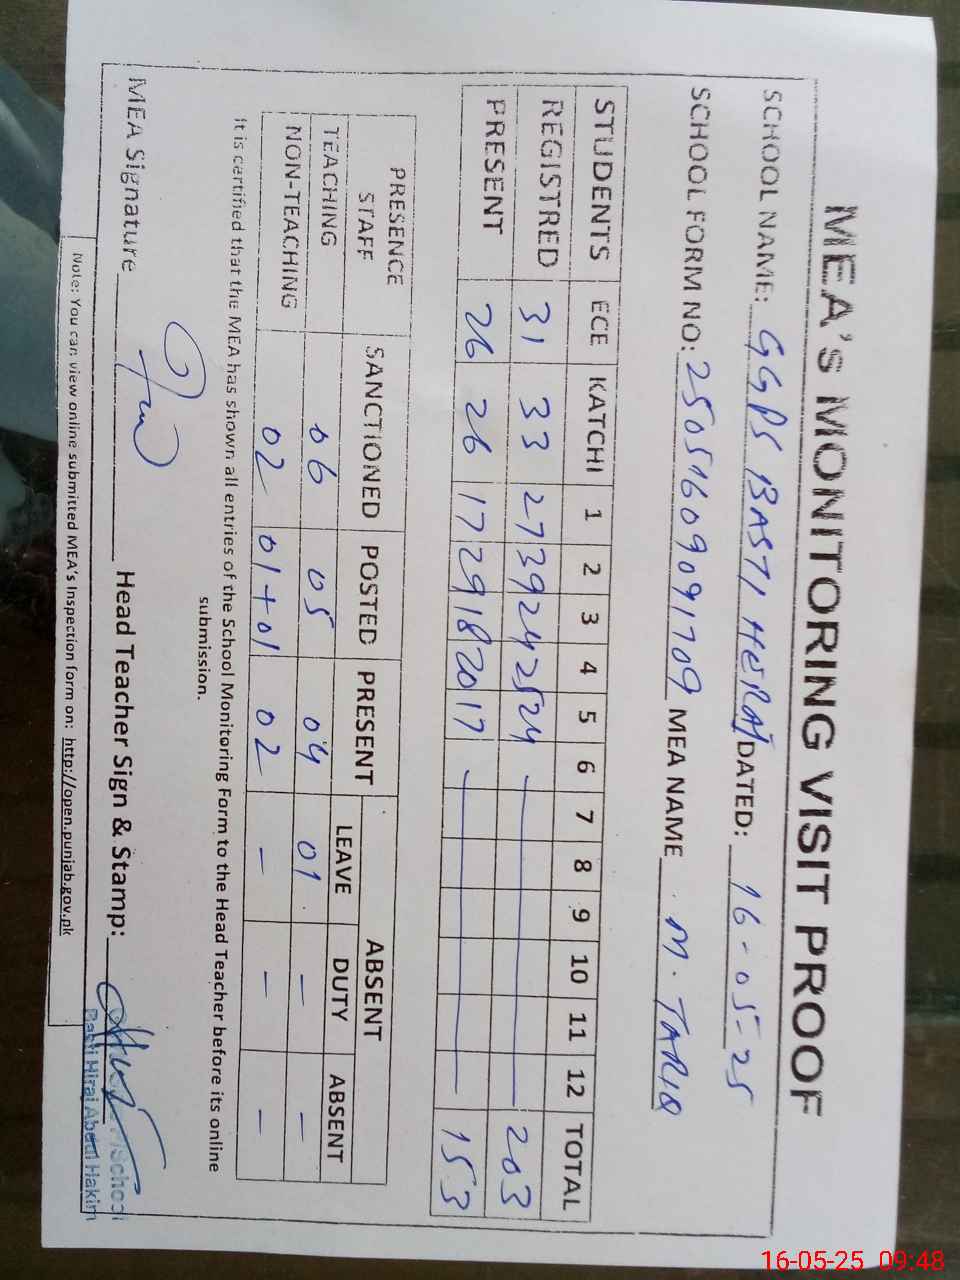 MEA'S MONITORING VISIT PROOF
SCHOOL NAME: GGPS BASTI HERAJ DATED: 16-05-25
SCHOOL FORM NO: 2505160909091709 MEA NAME M. TARIQ
STUDENTS ECE KATCHI 1 2 3 4 5 6 7 8 9 10 11 12 TOTAL
REGISTRED 31 33 27 39 24 25 24 203
PRESENT 26 26 17 29 18 20 17 153
PRESENCE STAFF SANCTIONED POSTED PRESENT ABSENT
LEAVE DUTY ABSENT
TEACHING 06 05 04 01 - -
NON-TEACHING 02 01+01 02 - - -
It is certified that the MEA has shown all entries of the School Monitoring Form to the Head Teacher before its online
submission.
MEA Signature Head Teacher Sign & Stamp:
School
Basti Hiraj Abdul Hakim
Note: You can view online submitted MEA's Inspection form on: http://open.punjab.gov.pk
16-05-25 09:48